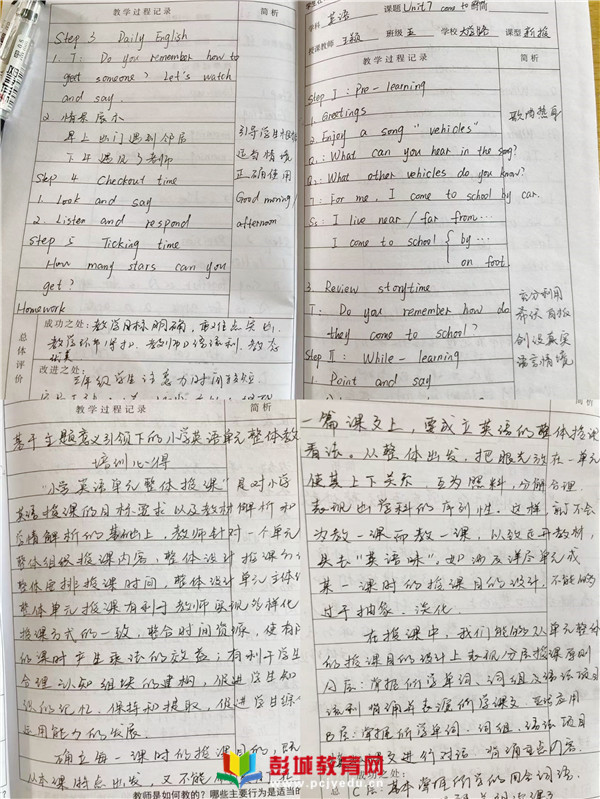 教学过程记录
简析
Step 3 Daily English
1. T: Do you remember how to
geet someone? Let's watch
and say.
2 情景展示
早上出门遇到邻居
下午遇见了老师
正确使用
Step 4 Checkout time
1. Look and say
Good morning /
2. Listen and respond
afternoon
Step 5 Ticking time
How many stars can you
get?
Homework
总体评价
成功之处:教学目标明确,重难点突出
改进之处:
学科 英语
课题 Unit 7
授课教师 王颖
班级 五
学校 大学路
课型 新授
教学过程记录
简析
Step I: Pre-learning
1. Greetings
2. Enjoy a song "vehicles"
Q1: What can you hear in the song?
Q2: What other vehicles do you know?
T: For me, I come to school by car.
Ss: I live near / far from...
I come to school { by ...
on foot.
3. Review storytime
充分利用
T: Do you remember how do
they come to school?
创设真实
语言情境
Step II: While-learning
1. Point and say
教学过程记录
简析
基于主题意义引领下的小学英语单元整体教
培训心得
"小学英语单元整体授课"是对小学
英语授课的目标要求以及教材解析和
学情解析的基础上,教师针对一个单元
整体组织授课内容,整体设计授课方
整体安排授课时间,整体设计单元主体
整体单元授课有利于教师实现多样化
授课方式的一致,整合时间资源,使有限
的课时产生乘法的效益;有利于学生
合理认知组块的建构,促进学生知
识的记忆、保持和提取,促进学生综
运用能力的发展。
确立每一课时的授课目的,既
从本课特点出发,又不能
教师是如何教的?哪些主要行为是适当的
一篇课文上,要成立英语的整体授课
看法。从整体出发,把眼光放在一单元
使其上下关系,互为照料,分解合理
表现出学科的序列性。这样,就不会
为教一课而教一课,以致丢开教材,
失去"英语味"。如涉及详尽单元或
某一课时的授课目的设计,不能够
过于抽象、淡化
在授课中,我们能够从单元整体
的授课目的设计上表现分层授课原则
A层:掌握所学单词、词组及语法项目
B层:掌握所学单词、词组、语法项目
进行对话,背诵重点内容。
基本掌握所学的四会词语。
彭城教育网
www.pcjyedu.cn